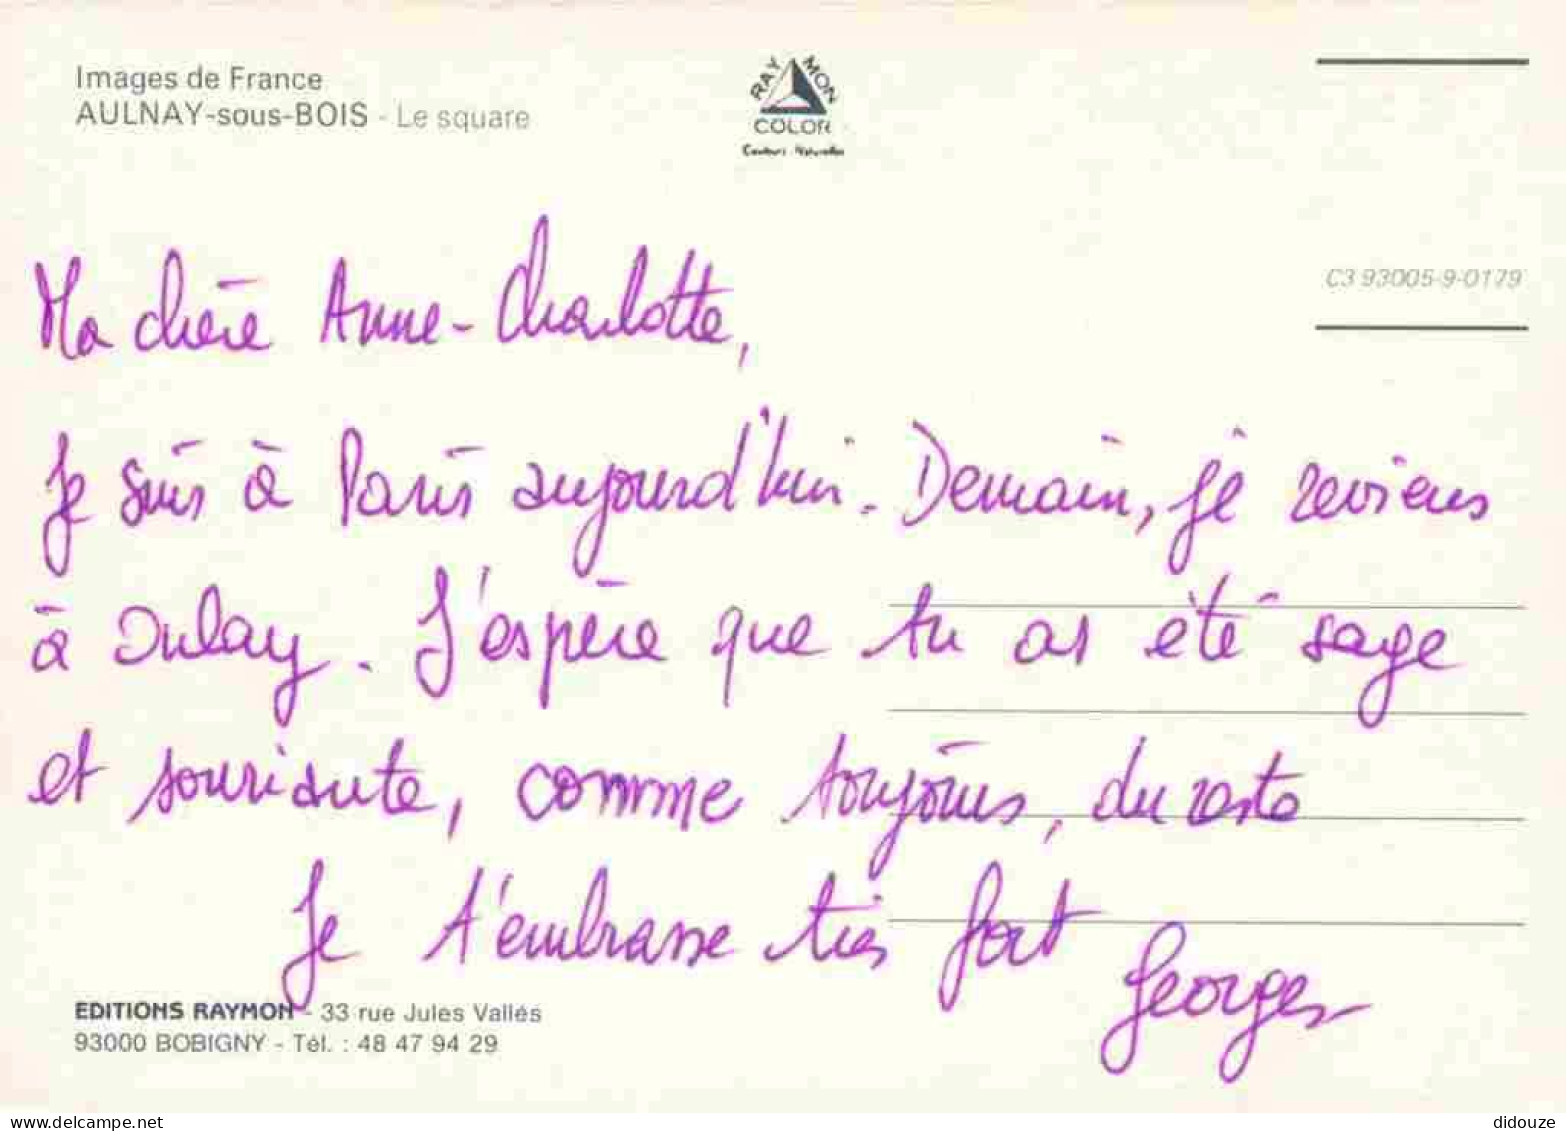 Images de France
AULNAY-sous-BOIS - Le square
RAYMON
COLOR
Couleurs Naturelles
C3 93005-9-0179
Ma chère Anne-Charlotte,
Je suis à Paris aujourd'hui. Demain, je reviens
à Aulnay. J'espère que tu as été sage
et souriante, comme toujours, du reste
Je t'embrasse très fort
Georges
EDITIONS RAYMON - 33 rue Jules Vallés
93000 BOBIGNY - Tél. : 48 47 94 29
delcampe.net
didouze